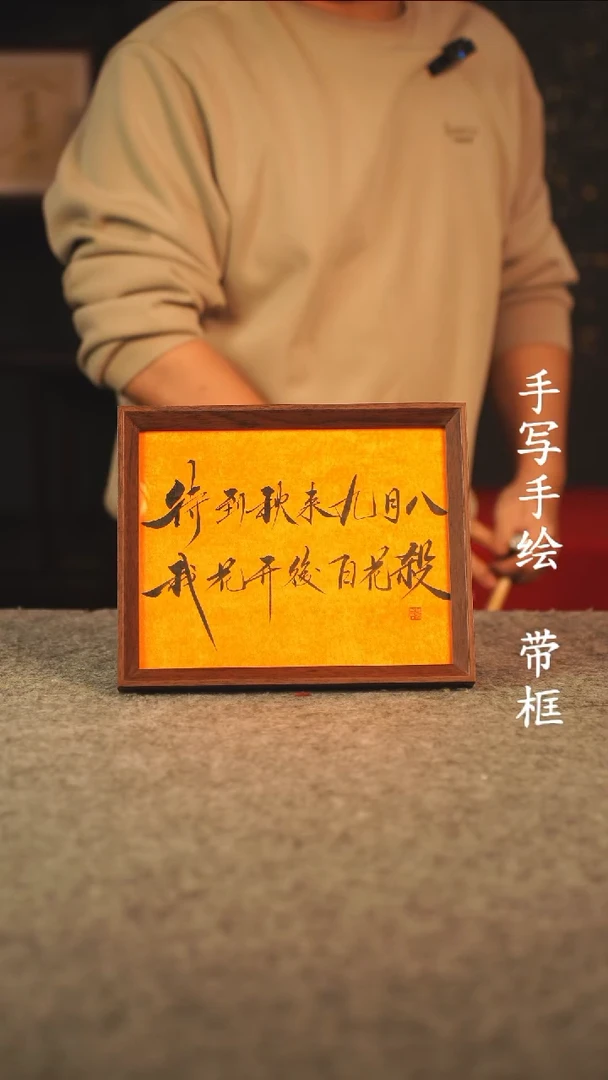 待到秋来九月八
我花开後百花殺
手写手绘 带框